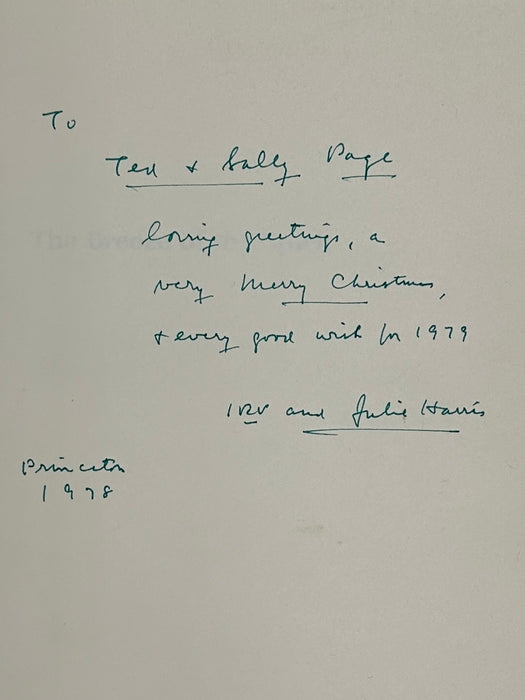 To
Ted + Sally Page
loving greetings, a
very Merry Christmas,
+ every good wish for 1979
IRV and Julie Harris
Princeton
1978